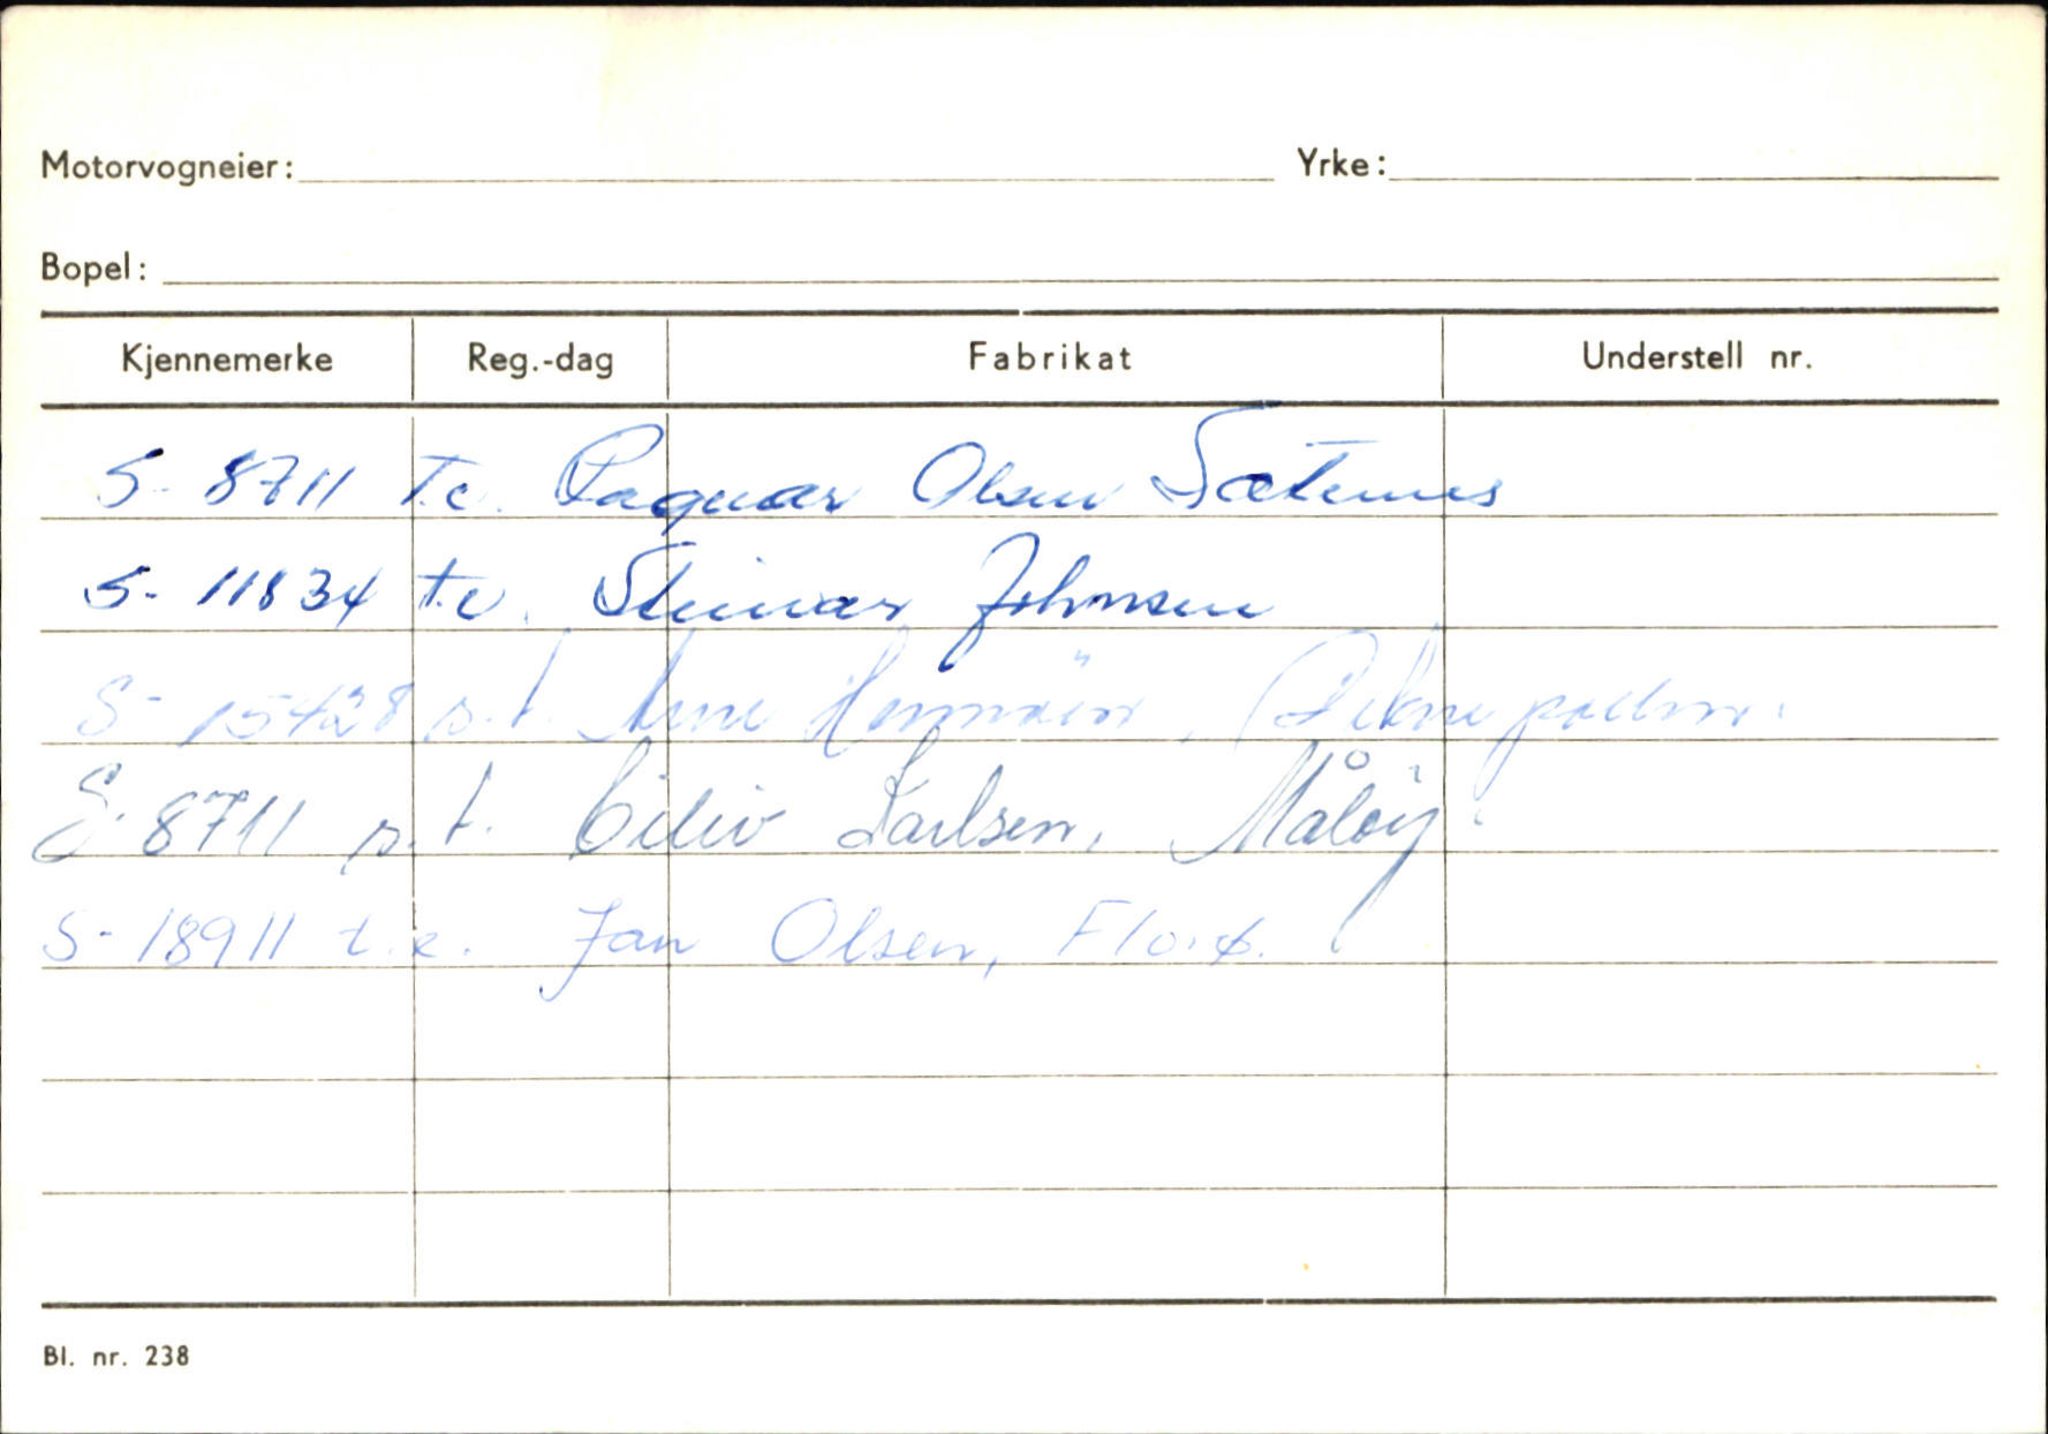 Motorvogneier: Yrke:
Bopel:
Kjennemerke Reg.-dag Fabrikat Understell nr.
S- 8711 T.c. Ragnar Olsen Sæternes
S- 11834 t.v. Steinar Johnsen
S- 15428 s.t. Arne
S- 8711 s.t. Eiliv Karlsen, Måløy
S- 18911 t.e. Jan Olsen, Florø.
Bl. nr. 238